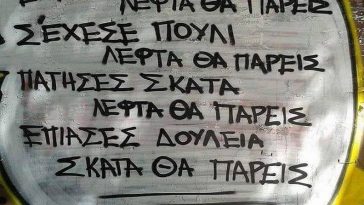 ΛΕΦΤΑ ΘΑ ΠΑΡΕΙΣ
Σ'ΕΧΕΣΕ ΠΟΥΛΙ
ΛΕΦΤΑ ΘΑ ΠΑΡΕΙΣ
ΠΑΤΗΣΕΣ ΣΚΑΤΑ
ΛΕΦΤΑ ΘΑ ΠΑΡΕΙΣ
ΕΠΙΑΣΕΣ ΔΟΥΛΕΙΑ
ΣΚΑΤΑ ΘΑ ΠΑΡΕΙΣ